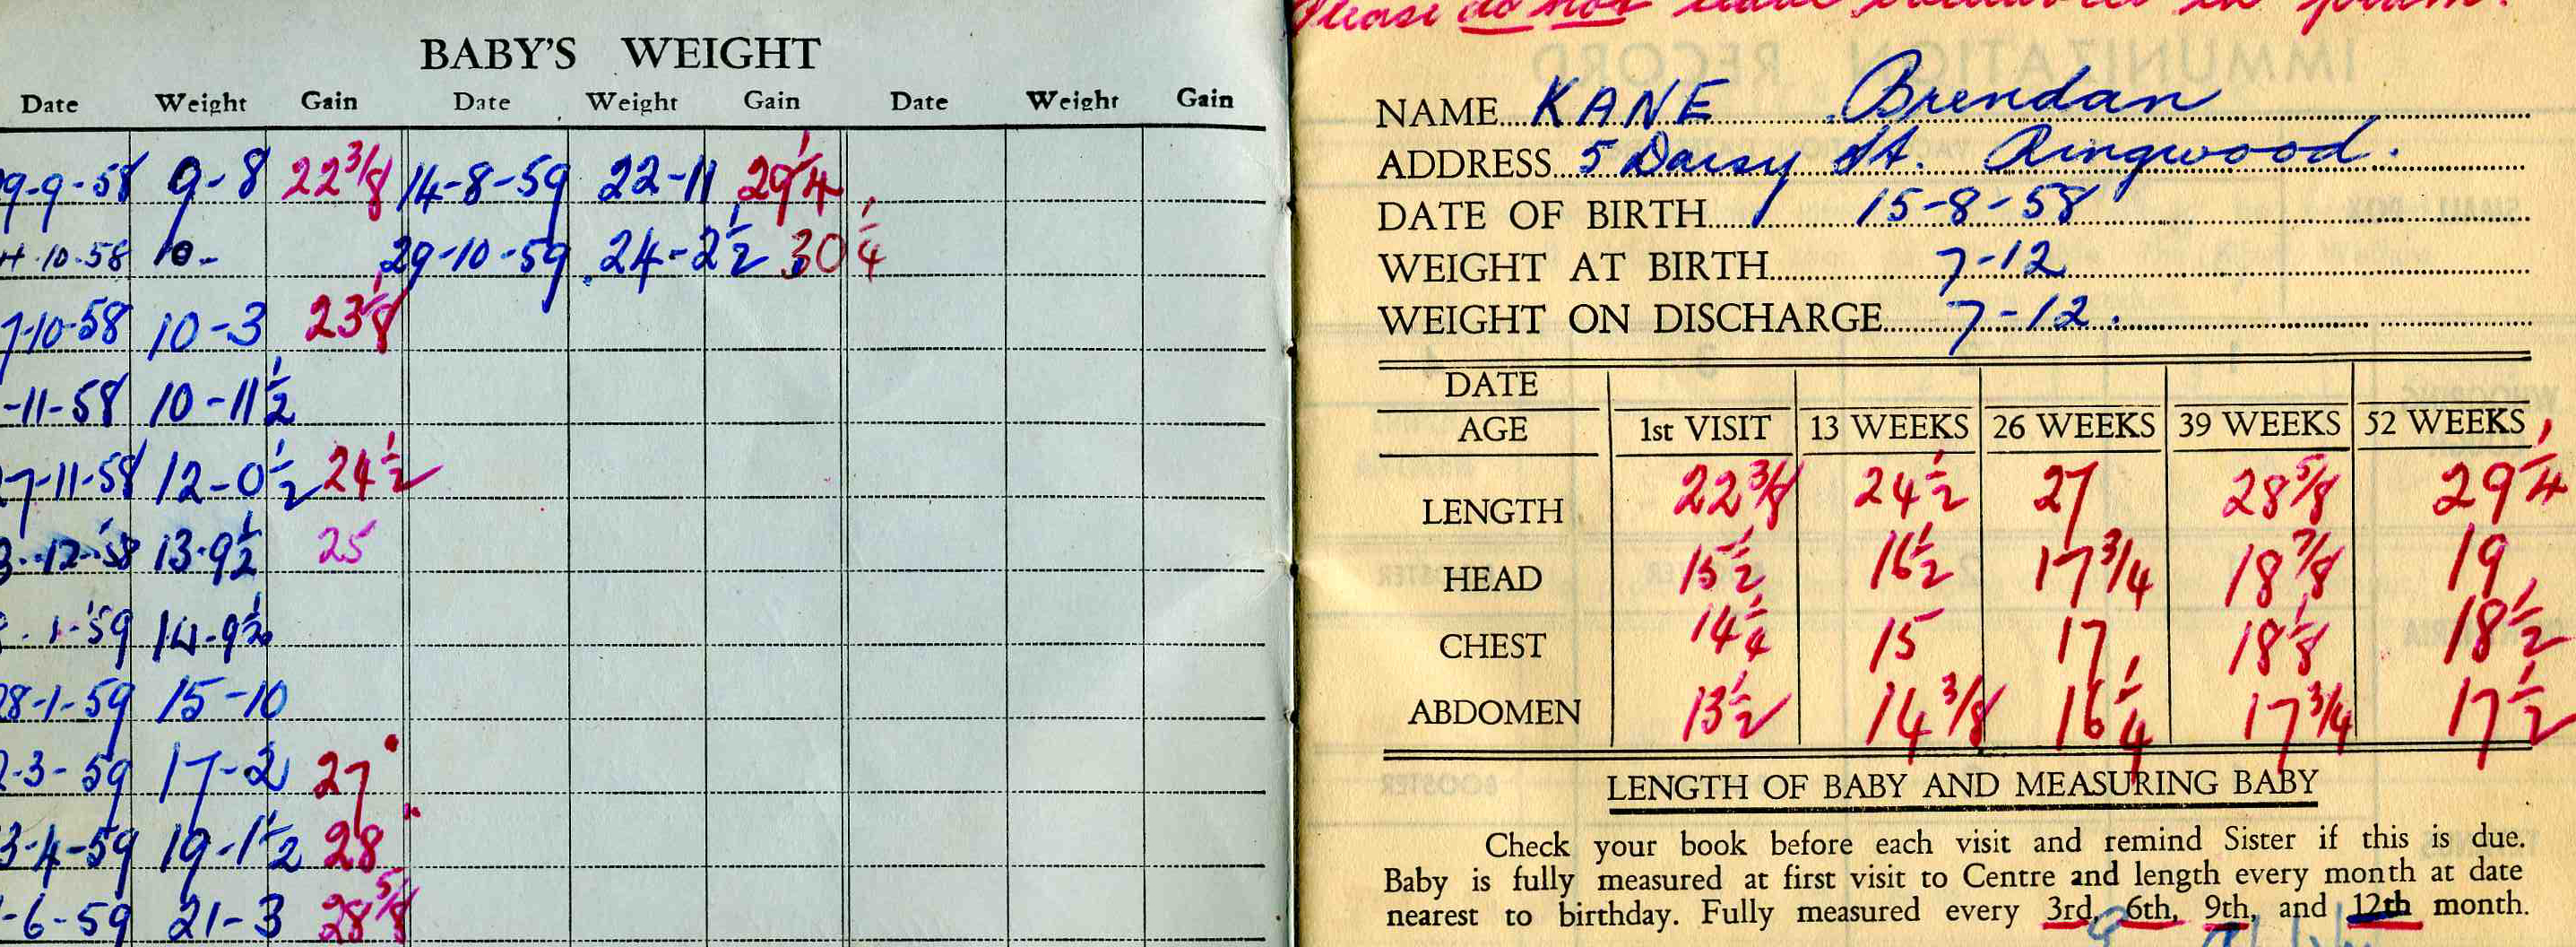 BABY'S WEIGHT
Date Weight Gain Date Weight Gain Date Weight Gain
9-9-58 9-8 22 3/8 14-8-59 22-11 29 1/4
10-58 10- 29-10-59 24-2 1/2 30 1/4
7-10-58 10-3 23 1/8
-11-58 10-11 1/2
7-11-58 12-0 1/2 24 1/2
3-12-58 13-9 1/2 25
1-59 14-9 1/2
28-1-59 15-10
2-3-59 17-2 27"
3-4-59 19-1 1/2 28"
-6-59 21-3 28 5/8
Please do not leave in pram.
NAME KANE Brendan
ADDRESS 5 Daisy St. Ringwood.
DATE OF BIRTH 15-8-58
WEIGHT AT BIRTH 7-12
WEIGHT ON DISCHARGE 7-12.
DATE
AGE 1st VISIT 13 WEEKS 26 WEEKS 39 WEEKS 52 WEEKS
LENGTH 22 3/8 24 1/2 27 28 5/8 29 1/4
HEAD 15 1/2 16 1/2 17 3/4 18 7/8 19
CHEST 14 1/4 15 17 18 1/8 18 1/2
ABDOMEN 13 1/2 14 3/8 16 1/4 17 3/4 17 1/2
LENGTH OF BABY AND MEASURING BABY
Check your book before each visit and remind Sister if this is due.
Baby is fully measured at first visit to Centre and length every month at date
nearest to birthday. Fully measured every 3rd, 6th, 9th, and 12th month.